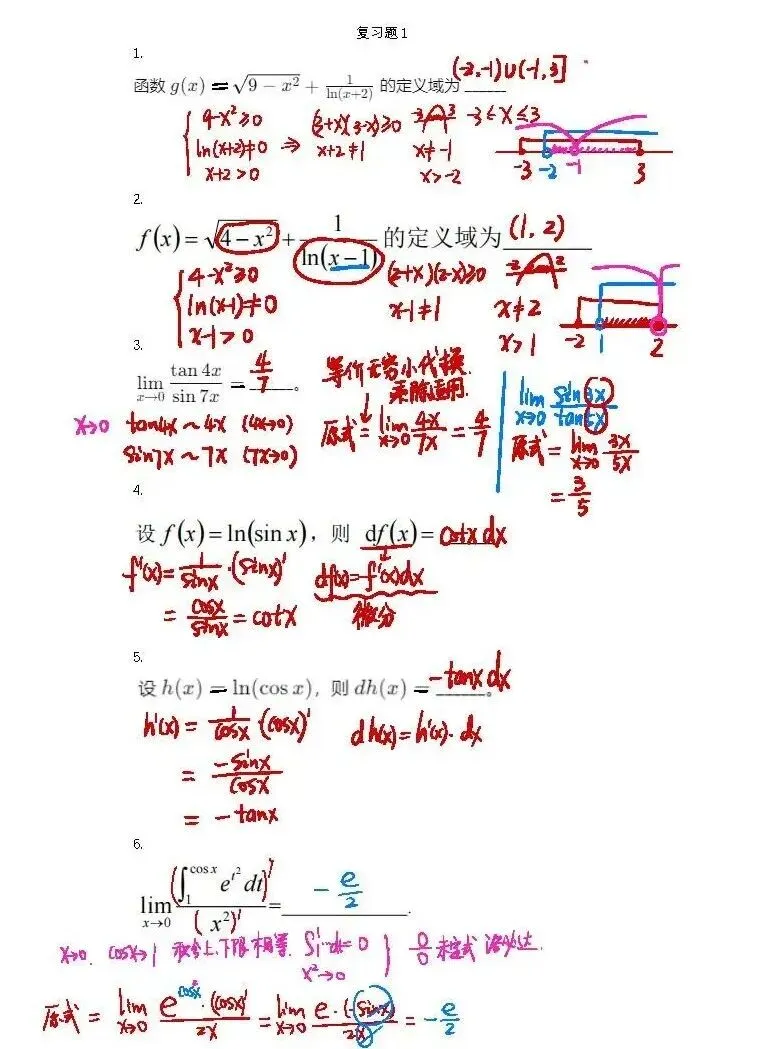 复习题1
1.
函数 g(x) = √(9 − x²) + 1/ln(x+2) 的定义域为 (-2,-1)∪(-1,3]
{ 9-x²≥0 (3+x)(3-x)≥0 -3 3 -3≤x≤3
ln(x+2)≠0 ⇒ x+2≠1 x≠-1
x+2>0 x>-2
-3 -2 -1 3
2.
f(x) = √(4 − x²) + 1/ln(x−1) 的定义域为 (1,2)
{ 4-x²≥0 (2+x)(2-x)≥0 -2 2
ln(x-1)≠0 x-1≠1 x≠2
x-1>0 x>1
-2 1 2
3.
lim x→0 tan 4x / sin 7x = 4/7 。
等价无穷小代换
乘除适用
x→0 tan4x ~ 4x (4x→0)
sin7x ~ 7x (7x→0)
原式 = lim x→0 4x/7x = 4/7
lim x→0 sin3x / tan5x
原式 = lim x→0 3x/5x
= 3/5
4.
设 f(x) = ln(sin x), 则 df(x) = cotx dx
f'(x) = 1/sinx · (sinx)' df(x) = f'(x)dx
= cosx/sinx = cotx 微分
5.
设 h(x) = ln(cos x), 则 dh(x) = -tanx dx 。
h'(x) = 1/cosx · (cosx)' dh(x) = h'(x)·dx
= -sinx/cosx
= -tanx
6.
lim x→0 (∫₁^cos x e^t² dt)' / (x²)' = -e/2 .
x→0. cosx→1 积分上.下限相等. ∫₁¹ dt=0 } 0/0 未定式 洛必达.
x²→0
原式 = lim x→0 e^cos²x · (cosx)' / 2x = lim x→0 e·(-sinx) / 2x = -e/2